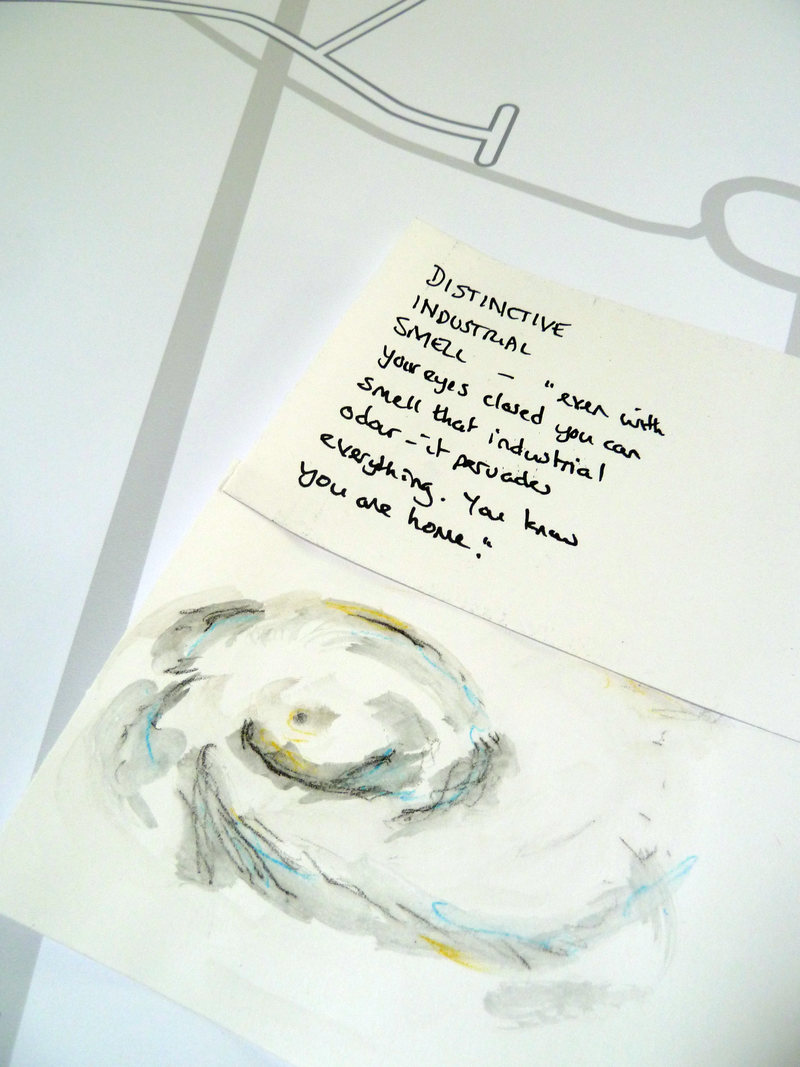 DISTINCTIVE
INDUSTRIAL
SMELL – "even with
your eyes closed you can
smell that industrial
odour – it pervades
everything. You know
you are home."